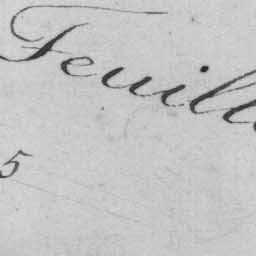 Feuill
5